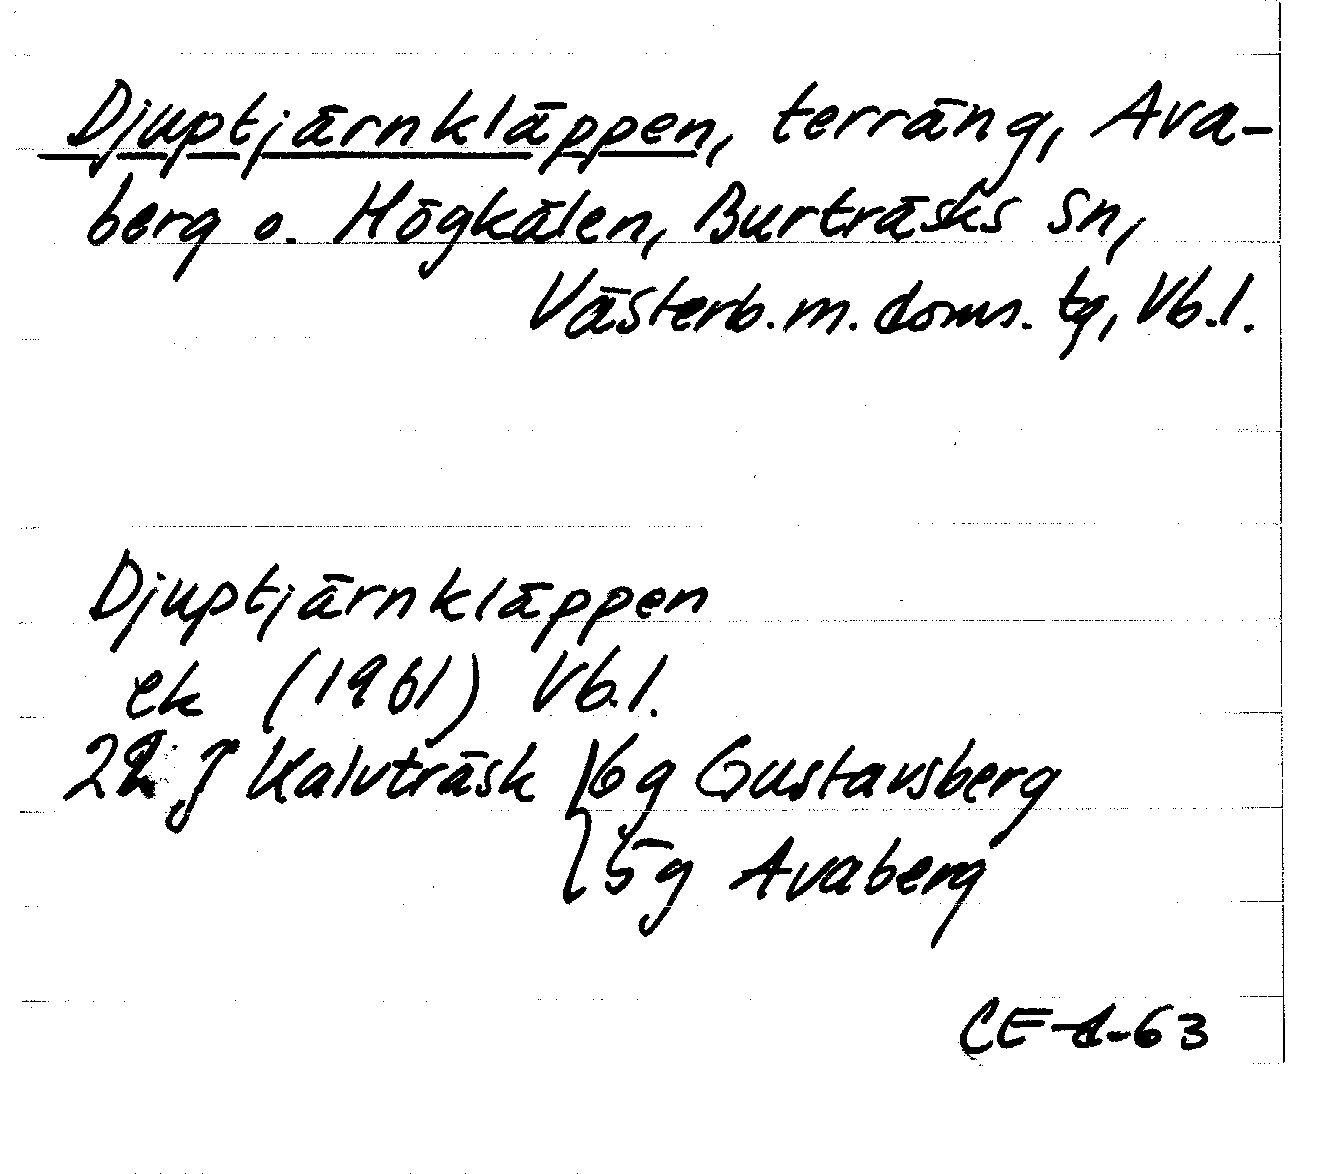 Djuptjärnkläppen, terräng, Ava-
berg o. Högkålen, Burträsks sn,
Västerb.m. doms. tg, Vb.l.
Djuptjärnkläppen
ek (1961) Vb.l.
22 J Kalvträsk } 6g Gustavsberg
5g Avaberg
CE-d-63